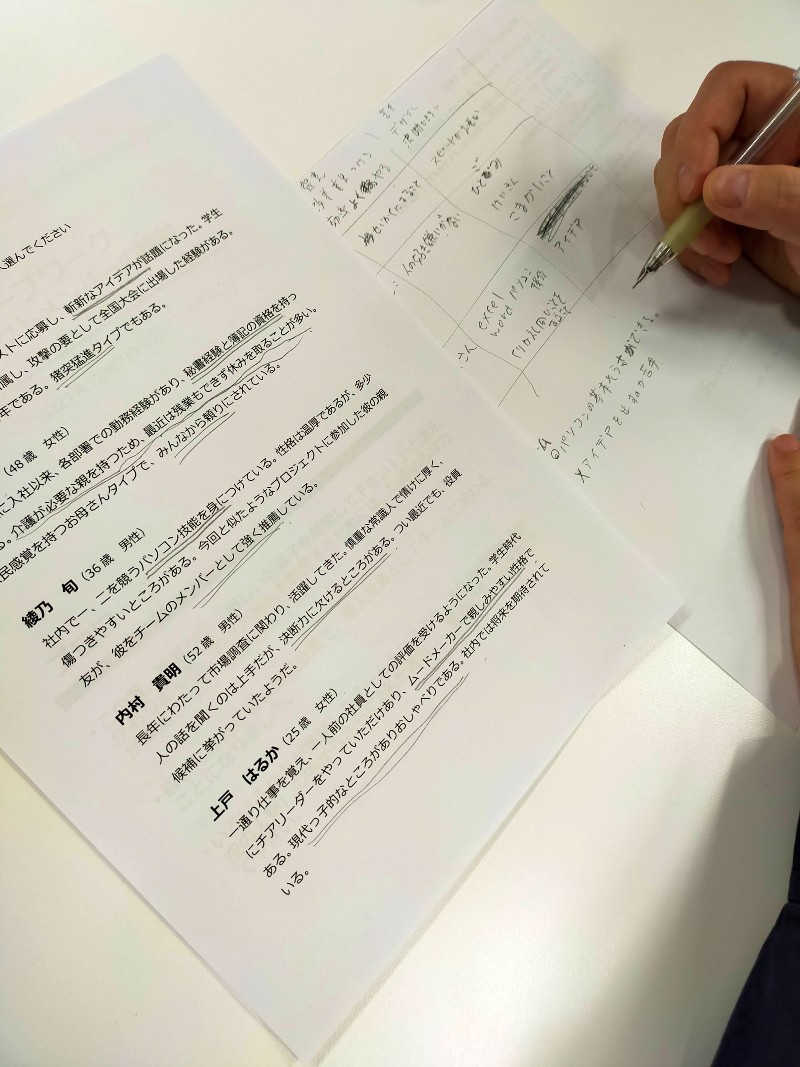 選んでください
ストに応募し、斬新なアイデアが話題になった。学生
属し、攻撃の要として全国大会に出場した経験がある。
年である。猪突猛進タイプでもある。
(48歳 女性)
に入社以来、各部署での勤務経験があり、秘書経験と簿記の資格を持つ
る。介護が必要な親を持つため、最近は残業もできず休みを取ることが多い。
民感覚を持つお母さんタイプで、みんなから頼りにされている。
綾乃 旬(36歳 男性)
社内で一、二を競うパソコン技能を身につけている。性格は温厚であるが、多少
傷つきやすいところがある。今回と似たようなプロジェクトに参加した彼の親
友が、彼をチームのメンバーとして強く推薦している。
内村 貴明(52歳 男性)
長年にわたって市場調査に関わり、活躍してきた。慎重な常識人で情けに厚く、
人の話を聞くのは上手だが、決断力に欠けるところがある。つい最近でも、役員
候補に挙がっていたようだ。
上戸 はるか(25歳 女性)
一通り仕事を覚え、一人前の社員としての評価を受けるようになった。学生時代
にチアリーダーをやっていただけあり、ムードメーカーで親しみやすい性格で
ある。現代っ子的なところがありおしゃべりである。社内では将来を期待されて
いる。
デザイン
けいさん
こまかいこと
アイデア
excel パソコン
word
パソコンの基本そうさができる。
×アイデアを出すのが苦手